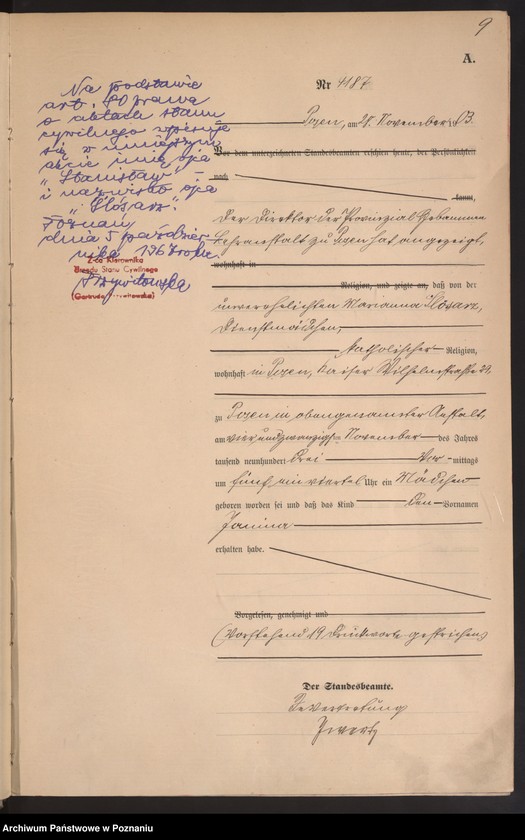 9
A.
Nr 4187
Posen, am 27. November 1903.
Vor dem unterzeichneten Standesbeamten erschien heute, der Persönlichkeit
nach
kannt,
Der Direktor der Provinzial Hebammen
Lehranstalt zu Posen hat angezeigt,
wohnhaft in
Religion, und zeigte an, daß von der
unverehelichten Marianna Slósarz,
Dienstmädchen,
katholischer Religion,
wohnhaft in Posen, Kaiser Wilhelmstraße
zu Posen in obengenannter Anstalt,
am vierundzwanzigsten November des Jahres
tausend neunhundert drei Vor-mittags
um fünf ein viertel Uhr ein Mädchen
geboren worden sei und daß das Kind den Vornamen
Janina
erhalten habe.
Vorgelesen, genehmigt und
(Vorstehend 19 Druckworte gestrichen)
Der Standesbeamte.
In Vertretung
Na podstawie
art. prawa
o aktach stanu
cywilnego wpisuje
się w niniejszym
akcie imię ojca
"Stanisław" –
i nazwisko ojca
"Slósarz".
Poznań
dnia 5 paździer
nika 1967 roku.
Z-ca Kierownika
Urzędu Stanu Cywilnego
(Gertruda
Archiwum Państwowe w Poznaniu